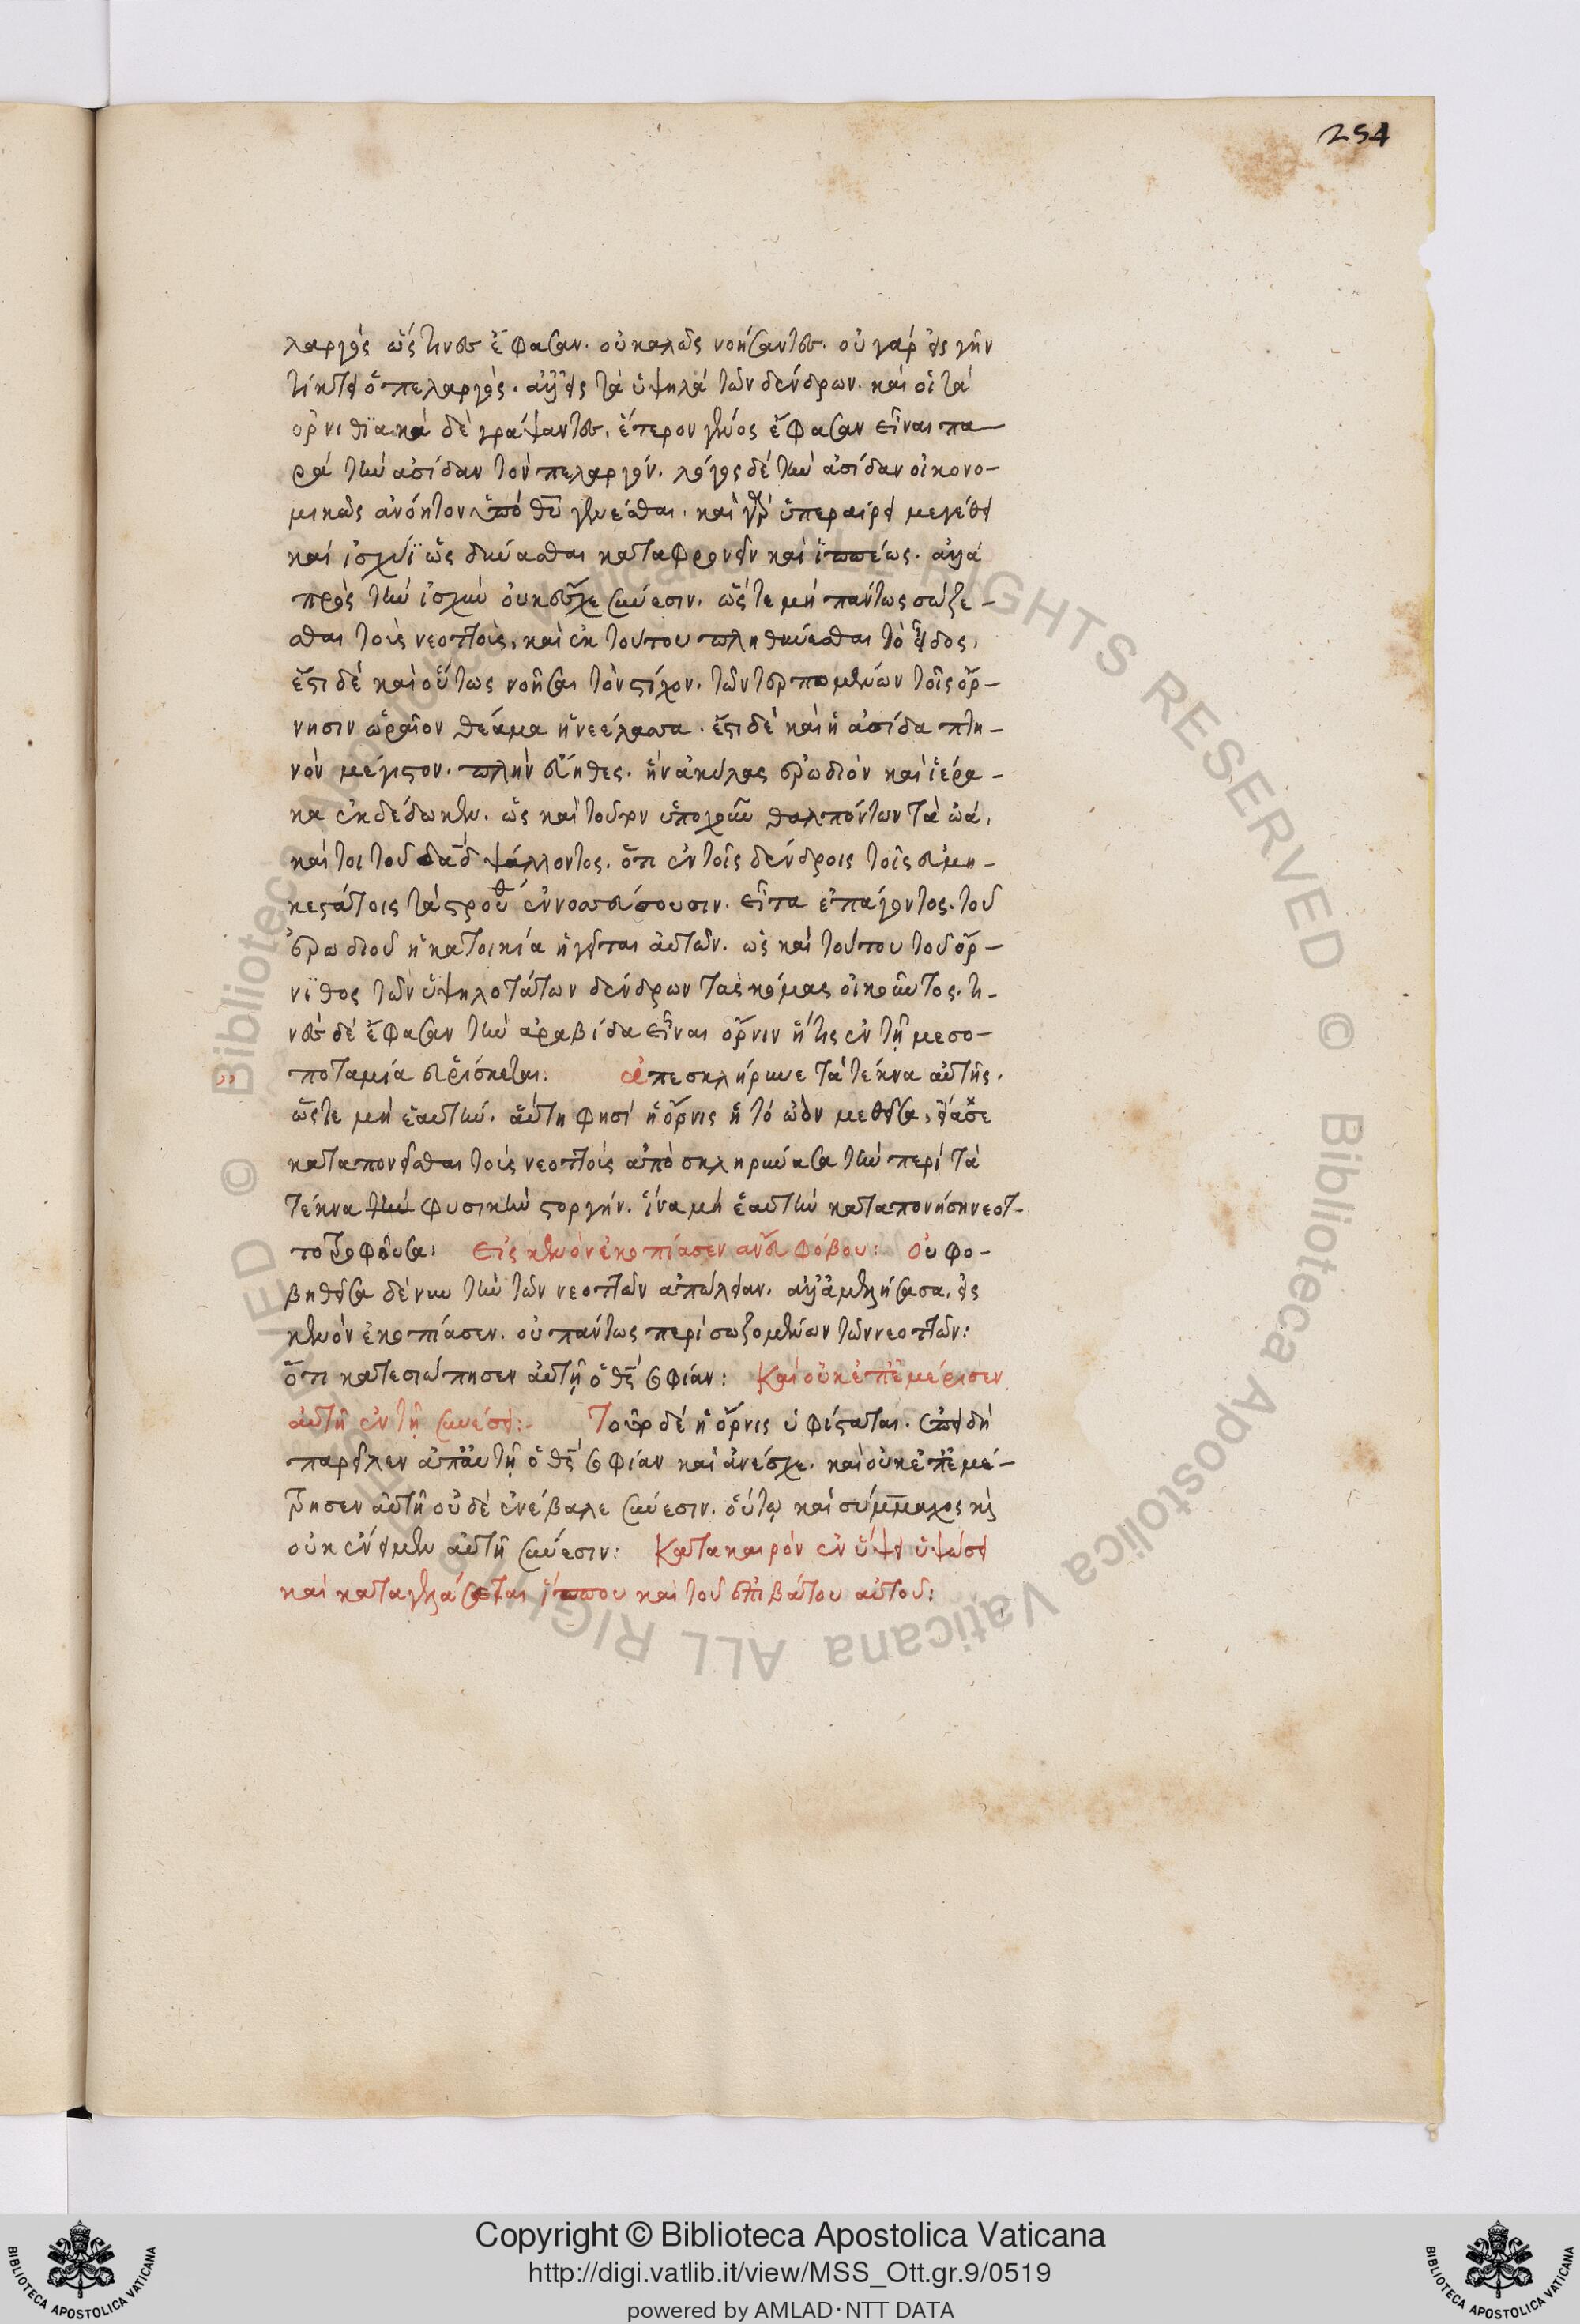 254
λαργὸς ὥς τινες ἔφασαν. οὐ καλῶς νοήσαντες. οὐ γὰρ εἰς γῆν
τίκτει ὁ πελαργός. ἀλλ' εἰς τὰ ὑψηλὰ τῶν δένδρων. καὶ οἱ τὰ
ὀρνιθϊακὰ δὲ γράψαντες, ἕτερον γένος ἔφασαν εἶναι πα
ρὰ τὴν ἀσίδαν τὸν πελαργόν. λόγος δὲ τὴν ἀσίδαν οἰκονο-
μικῶς ἀνόητον ὑπὸ θῦ γενέσθαι. καὶ γὰρ ὑπεραίρει μεγέθει
καὶ ἰσχύϊ ὡς δύνασθαι καταφρονεῖν καὶ ἱππέως. ἀλλὰ
πρὸς τὴν ἰσχὺν οὐκ ἔσχε σύνεσιν. ὥστε μὴ πάντως σώζε-
σθαι τοὺς νεοττοὺς, καὶ ἐκ τούτου πληθύνεσθαι τὸ εἶδος,
ἔστι δὲ καὶ οὕτως νοῆσαι τὸν στίχον. τῶν τερπομένων τοῖς ὄρ-
νησιν ὡραῖον θέαμα ἡ νεέλασσα. ἔστι δὲ καὶ ἡ ἀσίδα πτη-
νὸν μέγιστον. πλὴν εὔηθες. ἣν ἀκύλας ἐρωδιὸν καὶ ἱέρα-
κα ἐκδέδωκεν. ὡς καὶ τούτων θαλπόντων τὰ ὠά,
καίτοι τοῦ δαδ ψάλλοντος. ὅτι ἐν τοῖς δένδροις τοῖς εὐμη-
κεστάτοις τὰ στρουθία ἐννοσσεύσουσιν. εἶτα ἐπάγοντος. τοῦ
ἐρωδιοῦ ἡ κατοικία ἡγεῖται αὐτῶν. ὡς καὶ τούτου τοῦ ὄρ-
νϊθος τῶν ὑψηλοτάτων δένδρων τὰς κόμας οἰκοῦντος. τι-
νὲς δὲ ἔφασαν τὴν ἀραβίδα εἶναι ὄρνιν ἥτις ἐν τῇ μεσο-
ποταμία εὑρίσκεται: ἀπεσκλήρυνε τὰ τέκνα αὐτῆς.
ὥστε μὴ ἑαυτήν. αὕτη φησὶ ἡ ὄρνις
καταπονεῖσθαι τοὺς νεοττοὺς ἀποσκληρύνασα τὴν περὶ τὰ
τέκνα τὴν φυσικὴν στοργήν. ἵνα μὴ ἑαυτὴν καταπονήση νεοτ-
τοτροφοῦσα: εἰς κενὸν ἐκοπίασεν ἄνευ φόβου: Οὐ φο-
βηθεῖσα δὲ τὴν τῶν νεοττῶν ἀπώλειαν. ἀλλ' ἀμελήσασα, εἰς
κενὸν ἐκοπίασεν. οὐ πάντως περισωζομένων τῶν νεοττῶν:
ὅτι κατεσιώπησεν αὐτῇ ὁ θς σοφίαν: Καὶ οὐκ ἐπεμέρισεν
αὐτῆ ἐν τῇ συνέσει: Τοῦτο δὲ ἡ ὄρνις ὑφίσταται. ἐπειδὴ
παρεῖλεν ἀπ' αὐτῇ ὁ θς σοφίαν καὶ ἀνέσχε. καὶ οὐκ ἐπεμέ-
τρησεν αὐτῆ οὐδὲ ἐνέβαλε σύνεσιν. οὕτω καὶ σύμμαχος καὶ
οὐκ ἔνειμεν αὐτῆ σύνεσιν: Κατὰ καιρὸν ἐν ὕψει ὑψώσει
καὶ καταγελάσεται ἵππου καὶ τοῦ ἐπιβάτου αὐτοῦ:
© Biblioteca Apostolica Vaticana ALL RIGHTS RESERVED © Biblioteca Apostolica Vaticana ALL RIGHTS RESERVED
Copyright © Biblioteca Apostolica Vaticana
http://digi.vatlib.it/view/MSS_Ott.gr.9/0519
powered by AMLAD·NTT DATA
BIBLIOTECA APOSTOLICA VATICANA
BIBLIOTECA APOSTOLICA VATICANA